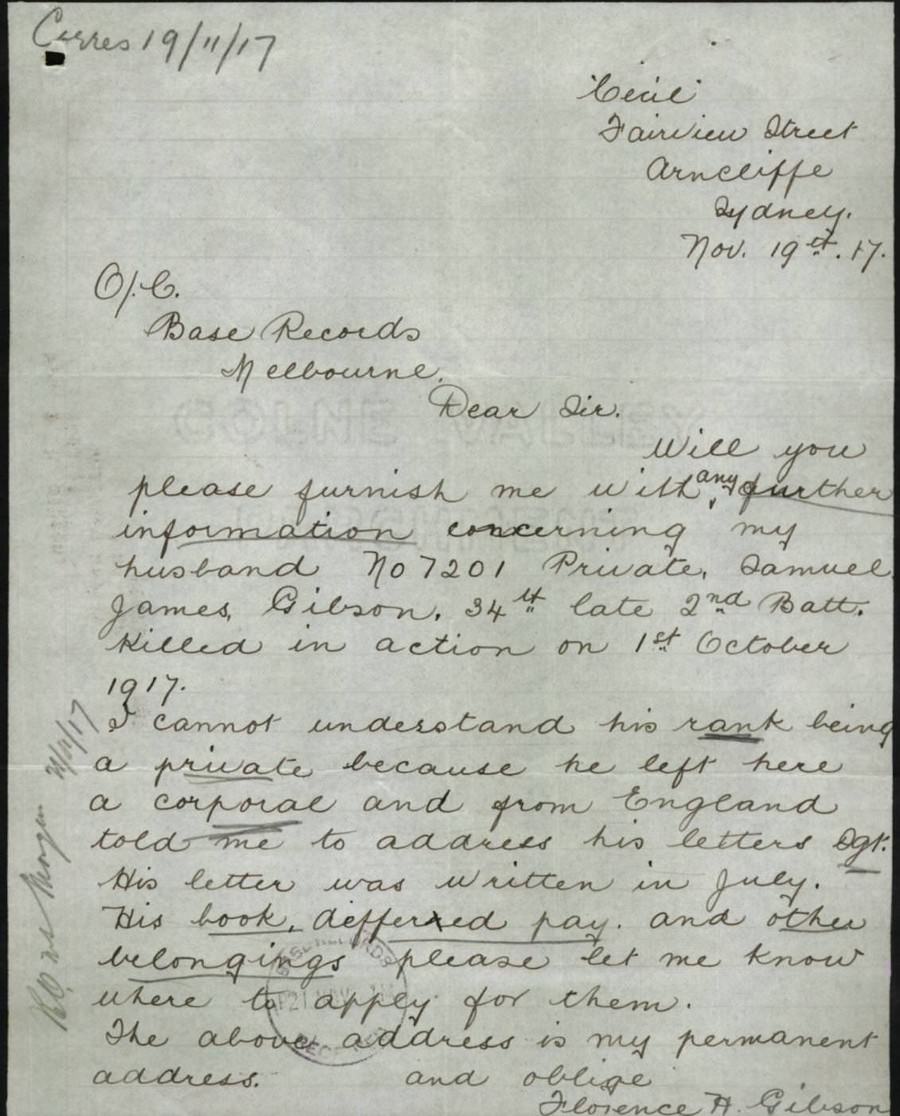 Corres 19/11/17
"Cecil"
Fairview Street
Arncliffe
Sydney.
Nov. 19st. 17.
O/.C.
Base Records
Melbourne.
Dear Sir.
Will you
please furnish me with any further
information concerning my
husband No 7201 Private, Samuel
James, Gibson. 34th late 2nd Batt.
Killed in action on 1st October
1917.
I cannot understand his rank being
a private because he left here
a corporal and from England
told me to address his letters Sgt.
His letter was written in July.
His book, defferred pay. and other
belongings please let me know
where to apply for them.
The above address is my permanent
address. and oblige
Florence H. Gibson
COLNE VALLEY
BASE RECORDS
21 NOV